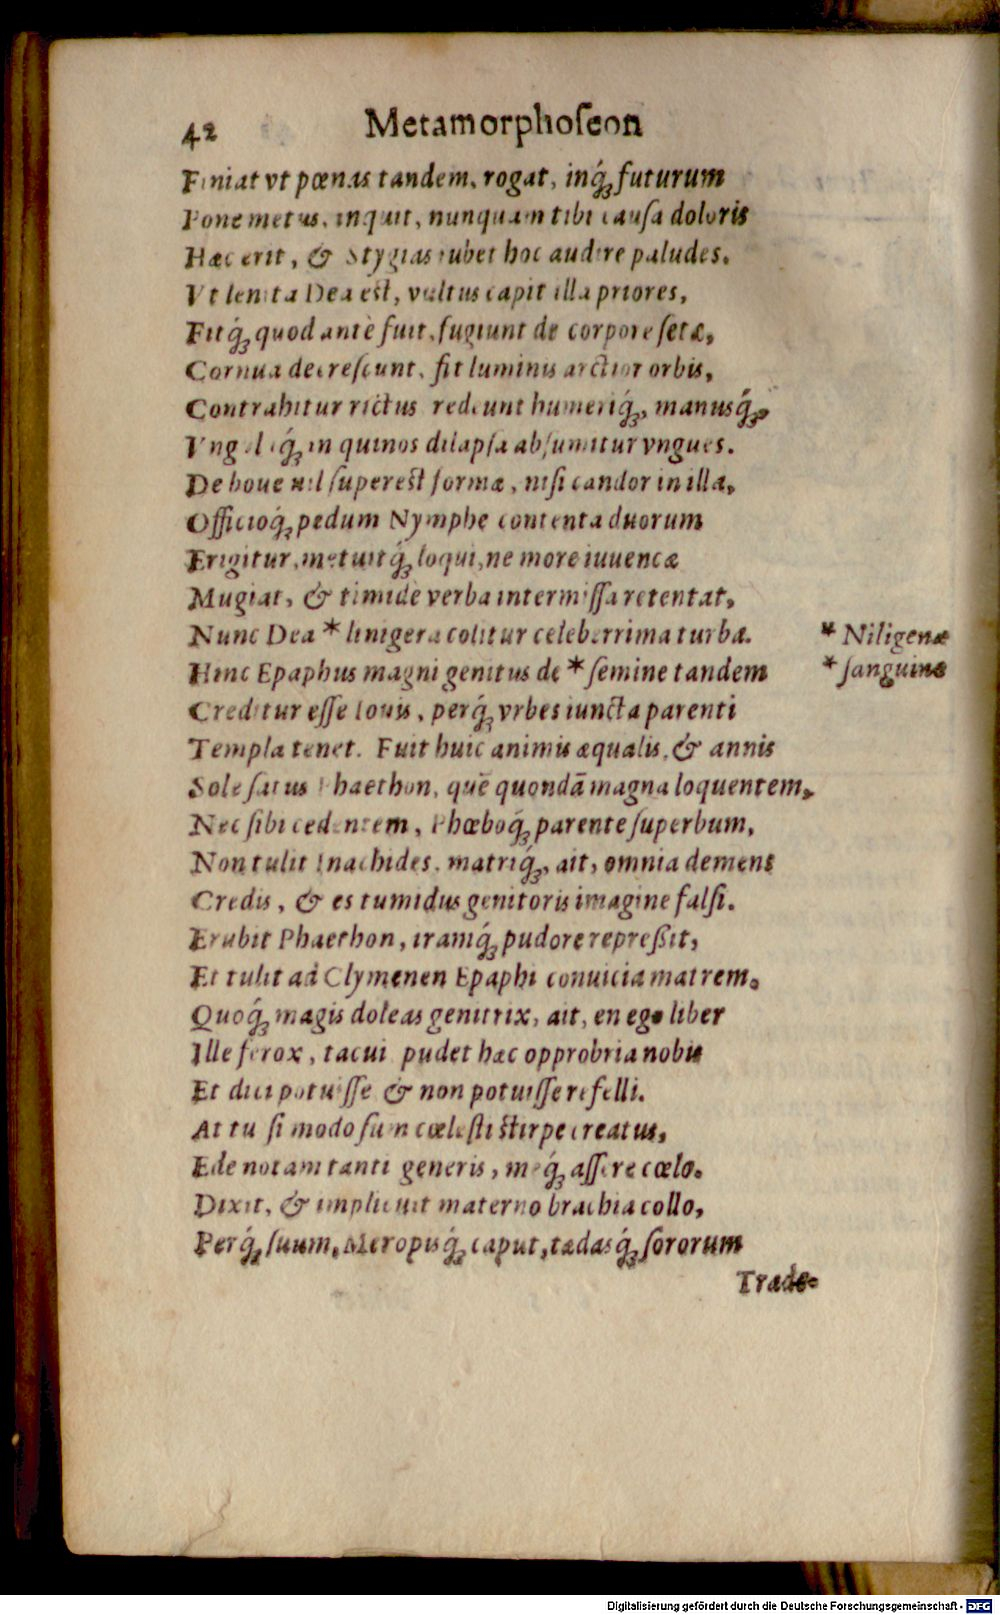 42 Metamorphoſeon
Finiat vt pœnas tandem, rogat, inq́ꝫ futurum
Pone metus, inquit, nunquam tibi cauſa doloris
Hæc erit, & Stygias iubet hoc audire paludes.
Vt lenita Dea est, vultus capit illa priores,
Fitq́ꝫ quod antè fuit, fugiunt de corpore ſetæ,
Cornua decreſcunt, fit luminis arctior orbis,
Contrahitur rictus redeunt humeriq́ꝫ, manusq́ꝫ,
Vngulaq́ꝫ in quinos dilapſa abſumitur vngues.
De boue nil ſuperest formæ, niſi candor in illa,
Officioq́ꝫ pedum Nymphe contenta duorum
Erigitur, metuitq́ꝫ loqui, ne more iuuencæ
Mugiat, & timidè verba intermiſſa retentat,
Nunc Dea * linigera colitur celeberrima turba. * Niligenæ
Hinc Epaphus magni genitus de * ſemine tandem * ſanguine
Creditur eſſe Iouis, perq́ꝫ vrbes iuncta parenti
Templa tenet. Fuit huic animis æqualis, & annis
Sole ſatus Phaethon, quē quondã magna loquentem,
Nec ſibi cedentem, Phœboq́ꝫ parente ſuperbum,
Non tulit Inachides, matriq́ꝫ, ait, omnia demens
Credis, & es tumidus genitoris imagine falſi.
Erubit Phaethon, iramq́ꝫ pudore repreßit,
Et tulit ad Clymenen Epaphi conuicia matrem.
Quoq́ꝫ magis doleas genitrix, ait, en ego liber
Ille ferox, tacui pudet hæc opprobria nobis
Et dici potuiſſe & non potuiſſe refelli.
At tu ſi modo ſum cœleſti ſtirpe creatus,
Ede notam tanti generis, meq́ꝫ aſſere cœlo.
Dixit, & implicuit materno brachia collo,
Perq́ꝫ ſuum, Meropisq́ꝫ caput, tædasq́ꝫ ſororum
Trade-
Digitalisierung gefördert durch die Deutsche Forschungsgemeinschaft - DFG